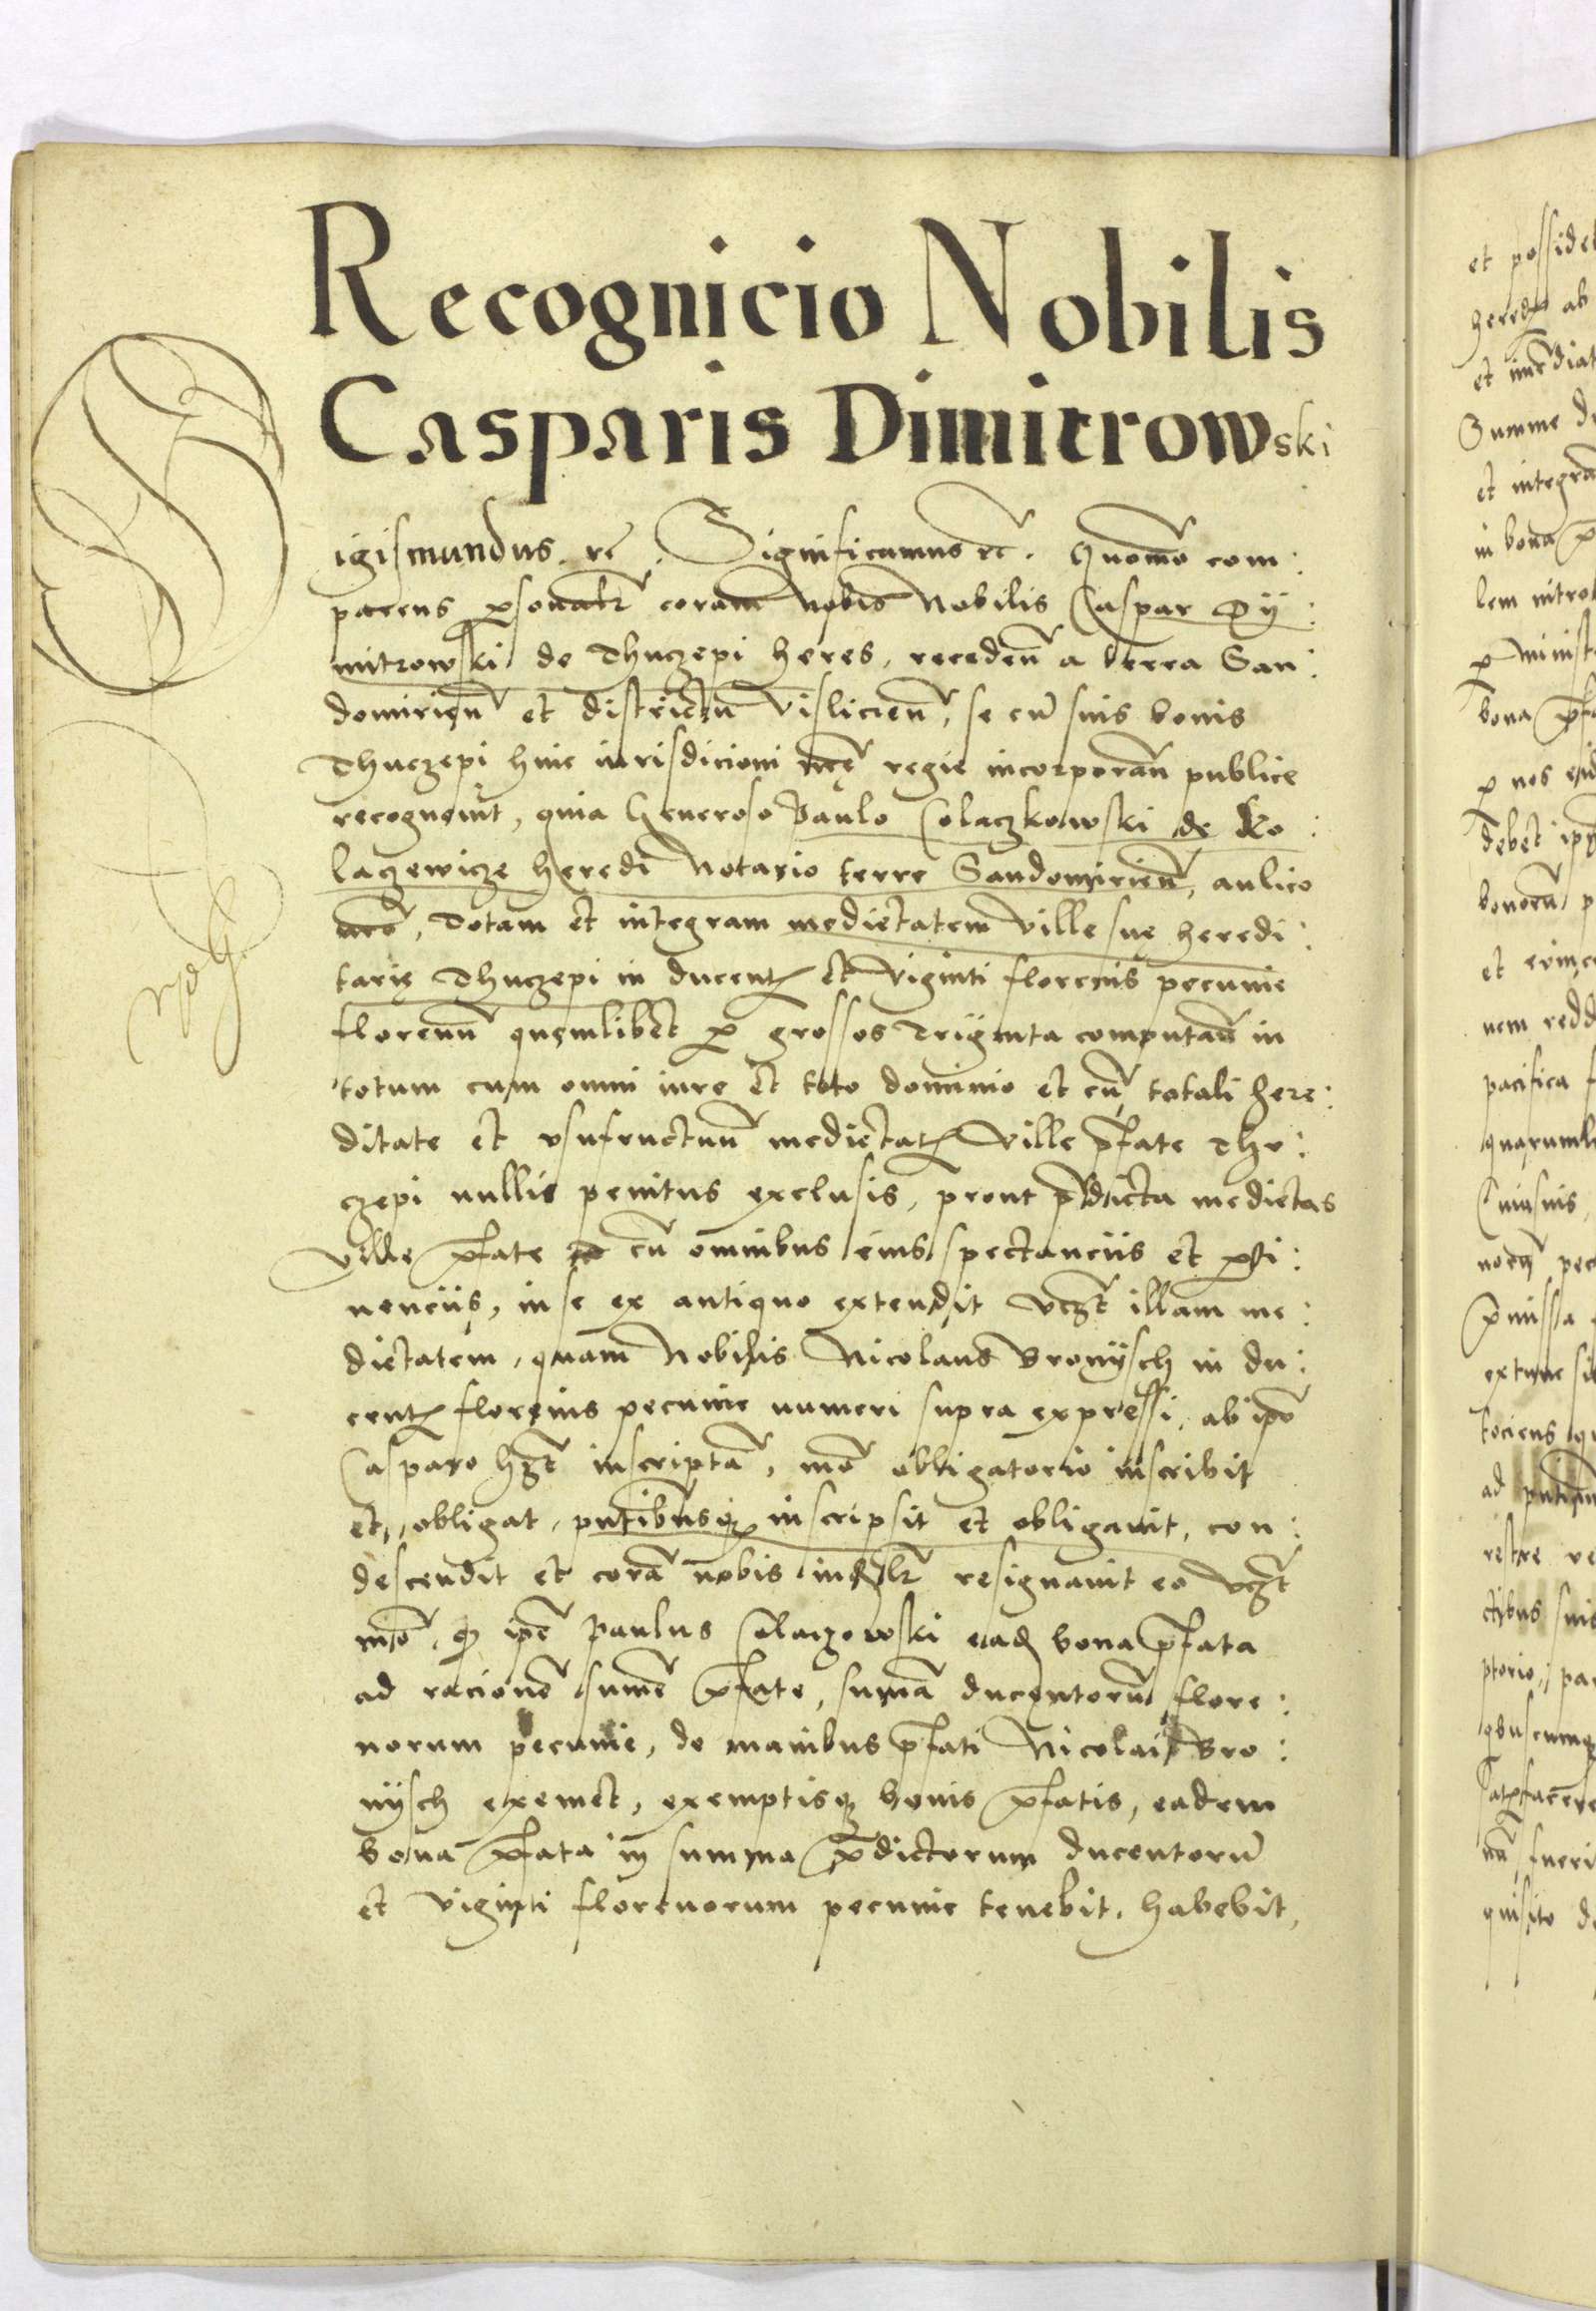 Recognicio Nobilis
Casparis Dimitrowski
Sigismundus rē. Significamus rc̄. Quomō com:
parens ꝑsonalr̄ coram nobis Nobilis Caspar Dÿ:
mitrowski de Thuczepi heres, recedeñ a terra San:
domirieñ et districtu Vislicieñ, se cū suis bonis
Thuczepi huic iurisdicioni nr̄ę regie incorporañ publice
recognovit, quia Generoso Paulo Colaczkowski de Ko:
laczewicze heredi Notario terre Sandomirieñ, aulico
nrō, Totam et integram medietatem Ville sue heredi:
tarię Thuczepi in ducentꝭ et Viginti florenis pecunie
florenū quemlibet ꝑ grossos Triginta computañ in
totum cum omni iure et toto dominio et cū totali here:
ditate et usufructuū medietatꝭ Ville p̄fate Thu:
czepi nullis penitus exclusis, prout p̄dicta medietas
Ville p̄fate cū omnibus eius spectanciis et ꝑti:
nenciis, in se ex antiquo extendit vczt̄ illam me:
dietatem, quam Nobilis Nicolaus Bronÿsch in du:
centꝭ florenis pecunie numeri supra expressi, ab ip̄o
Casparo hz̄t inscriptā, mō obligatorio inscribit
et obligat, pn̄tibusqꝫ inscripsit et obligavit, con:
descendit et corā nobis resignavit eo vczt̄
mō, qꝫ ip̄e Paulus Colaczowski eadꝫ bona p̄fata
ad racionē sum̄e p̄fate, sum̄ā ducentorū flore:
norum pecunie, de manibus p̄fati Nicolai Bro:
nÿsch exemet, exemptisqꝫ bonis p̄fatis, eadem
bona p̄fata in summa p̄dictorum ducentorū
et Viginti florenorum pecunie tenebit, habebit,
et posside
hered ab
et imēdiat
Summe d
et integra
in bona
lem intro
ꝑ minist
bona p̄f
ꝑ nos
debet ip
bonorū p
et
nem redd
pacifica f
quarumli
Cuiusuis
pec
p̄missa
extunc si
tociens qu
ad
restre re
ctibus suis
ptorio, pa
fueri
quisito d